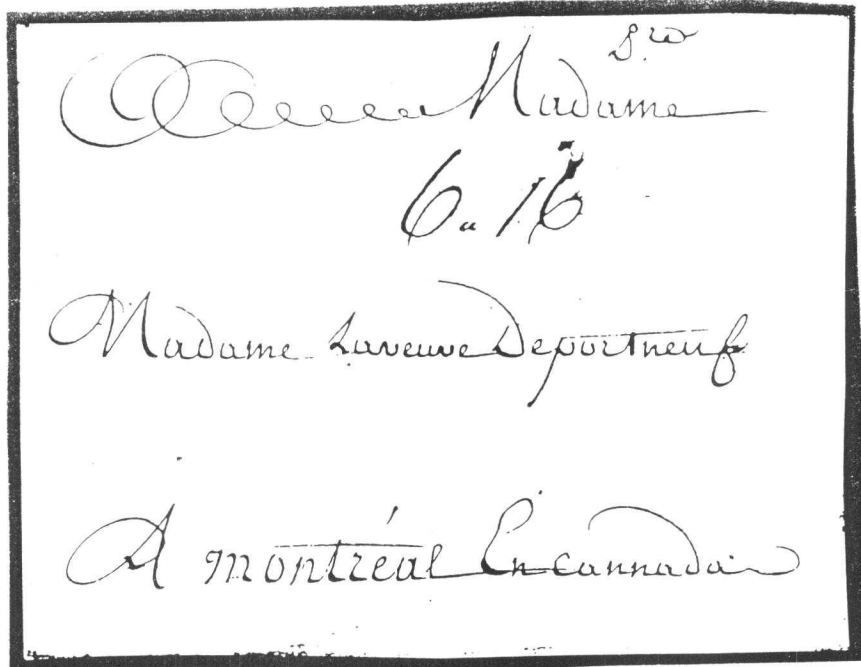 Madame
6. 16
Madame Laveuve Deportneuf
A montréal En cannada